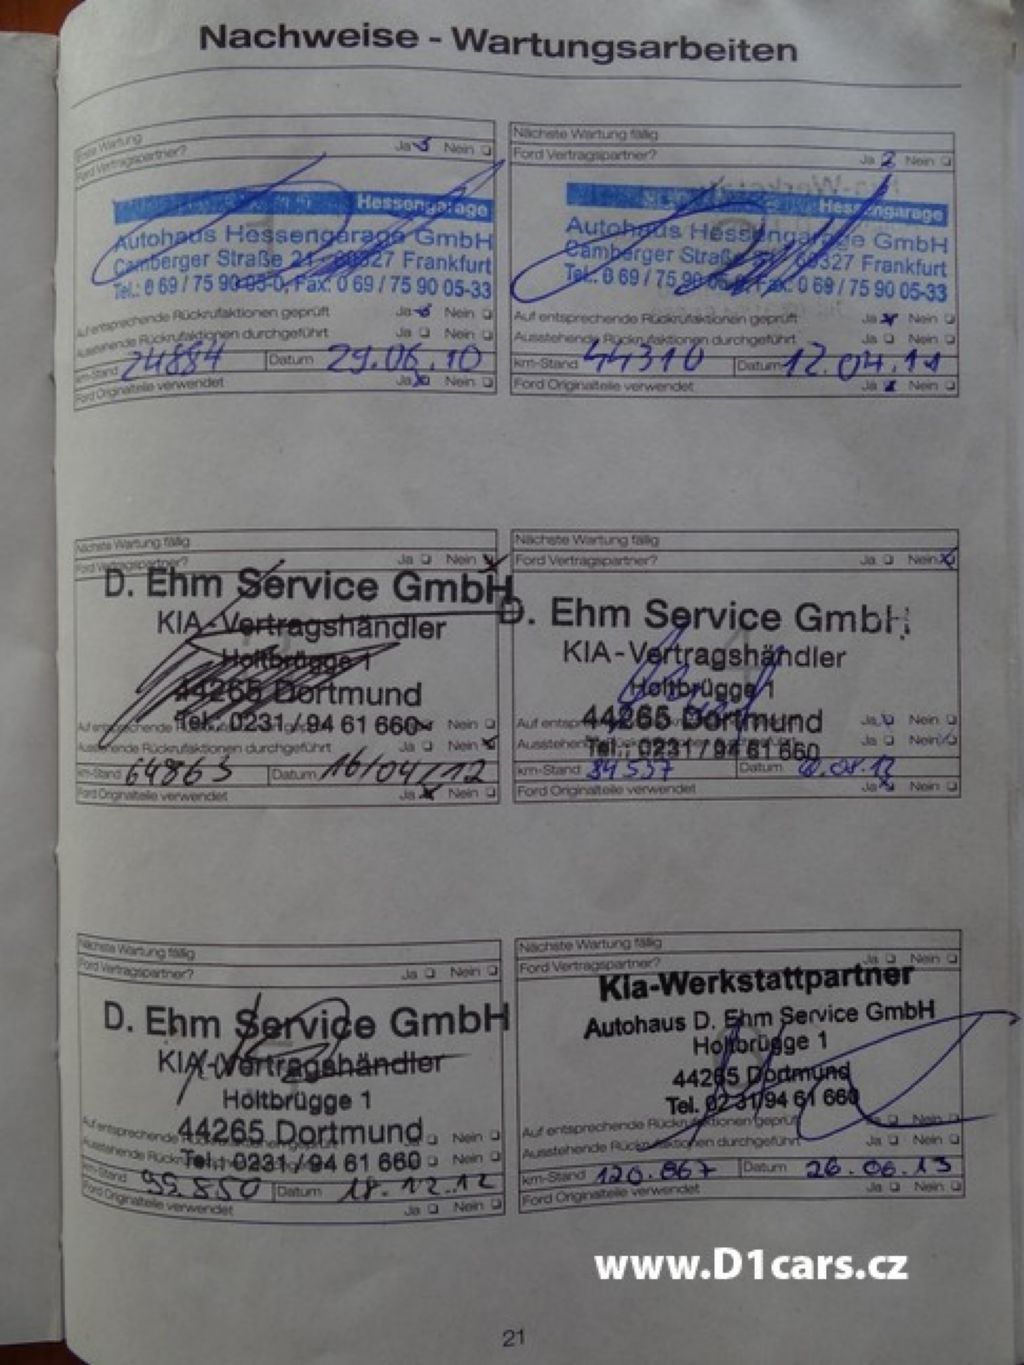 Nachweise - Wartungsarbeiten
Erste Wartung
Ford Vertragspartner? Ja Nein
Hessengarage
Autohaus Hessengarage GmbH
Camberger Straße 21 - 60327 Frankfurt
Tel.: 0 69 / 75 90 05-0, Fax: 0 69 / 75 90 05-33
Auf entsprechende Rückrufaktionen geprüft Ja Nein
Ausstehende Rückrufaktionen durchgeführt Ja Nein
km-Stand 24884 Datum 29.06.10
Ford Originalteile verwendet Ja Nein
Nächste Wartung fällig
Ford Vertragspartner? Ja Nein
Hessengarage
Autohaus Hessengarage GmbH
Camberger Straße 60327 Frankfurt
Tel.: 0 69 / 75 90 05-0, Fax: 0 69 / 75 90 05-33
Auf entsprechende Rückrufaktionen geprüft Ja Nein
Ausstehende Rückrufaktionen durchgeführt Ja Nein
km-Stand 44310 Datum 12.04.11
Ford Originalteile verwendet Ja Nein
Nächste Wartung fällig
Ford Vertragspartner? Ja Nein
D. Ehm Service GmbH
KIA-Vertragshändler
Holtbrügge 1
44265 Dortmund
Tel.: 0231 / 94 61 660
Auf entsprechende Nein
Ausstehende Rückrufaktionen durchgeführt Ja Nein
km-Stand 64863 Datum 16/04/12
Ford Originalteile verwendet Ja Nein
Nächste Wartung fällig
Ford Vertragspartner? Ja Nein
D. Ehm Service GmbH
KIA-Vertragshändler
Holtbrügge 1
44265 Dortmund
Tel.: 0231 / 94 61 660
Auf Ja Nein
Ja Nein
km-Stand 84537 Datum
Ford Originalteile verwendet Ja Nein
Nächste Wartung fällig
Ford Vertragspartner? Ja Nein
D. Ehm Service GmbH
KIA-Vertragshändler
Holtbrügge 1
44265 Dortmund
Tel.: 0231 / 94 61 660
Auf entsprechende Nein
Ausstehende Nein
km-Stand 99.850 Datum 18.12.12
Ford Originalteile verwendet Ja Nein
Nächste Wartung fällig
Ford Vertragspartner? Ja Nein
Kia-Werkstattpartner
Autohaus D. Ehm Service GmbH
Holtbrügge 1
44265 Dortmund
Tel. 0231/94 61 660
Auf entsprechende Rückrufaktionen geprüft Ja Nein
Ausstehende Rückrufaktionen durchgeführt Ja Nein
km-Stand 120.867 Datum 26.06.13
Ford Originalteile verwendet Ja Nein
www.D1cars.cz
21